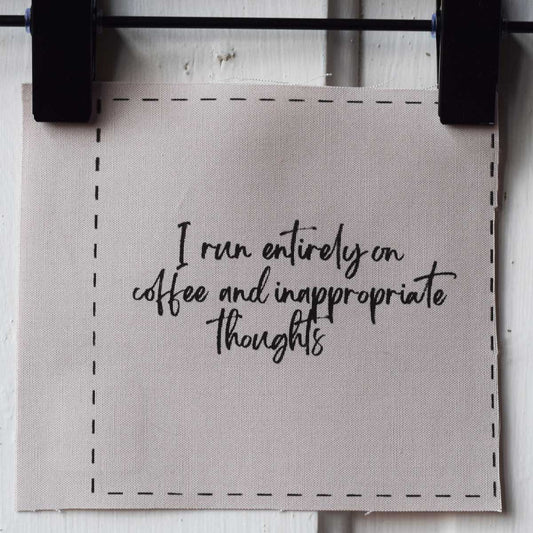 I run entirely on
coffee and inappropriate
thoughts